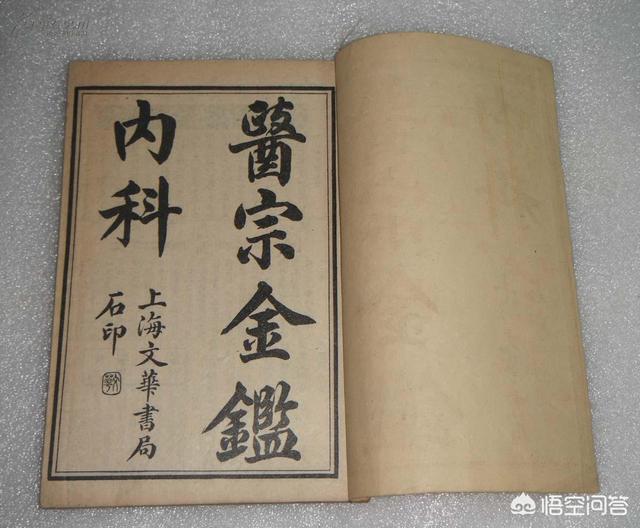 醫宗金鑑
内科
上海文華書局
石印
悟空问答